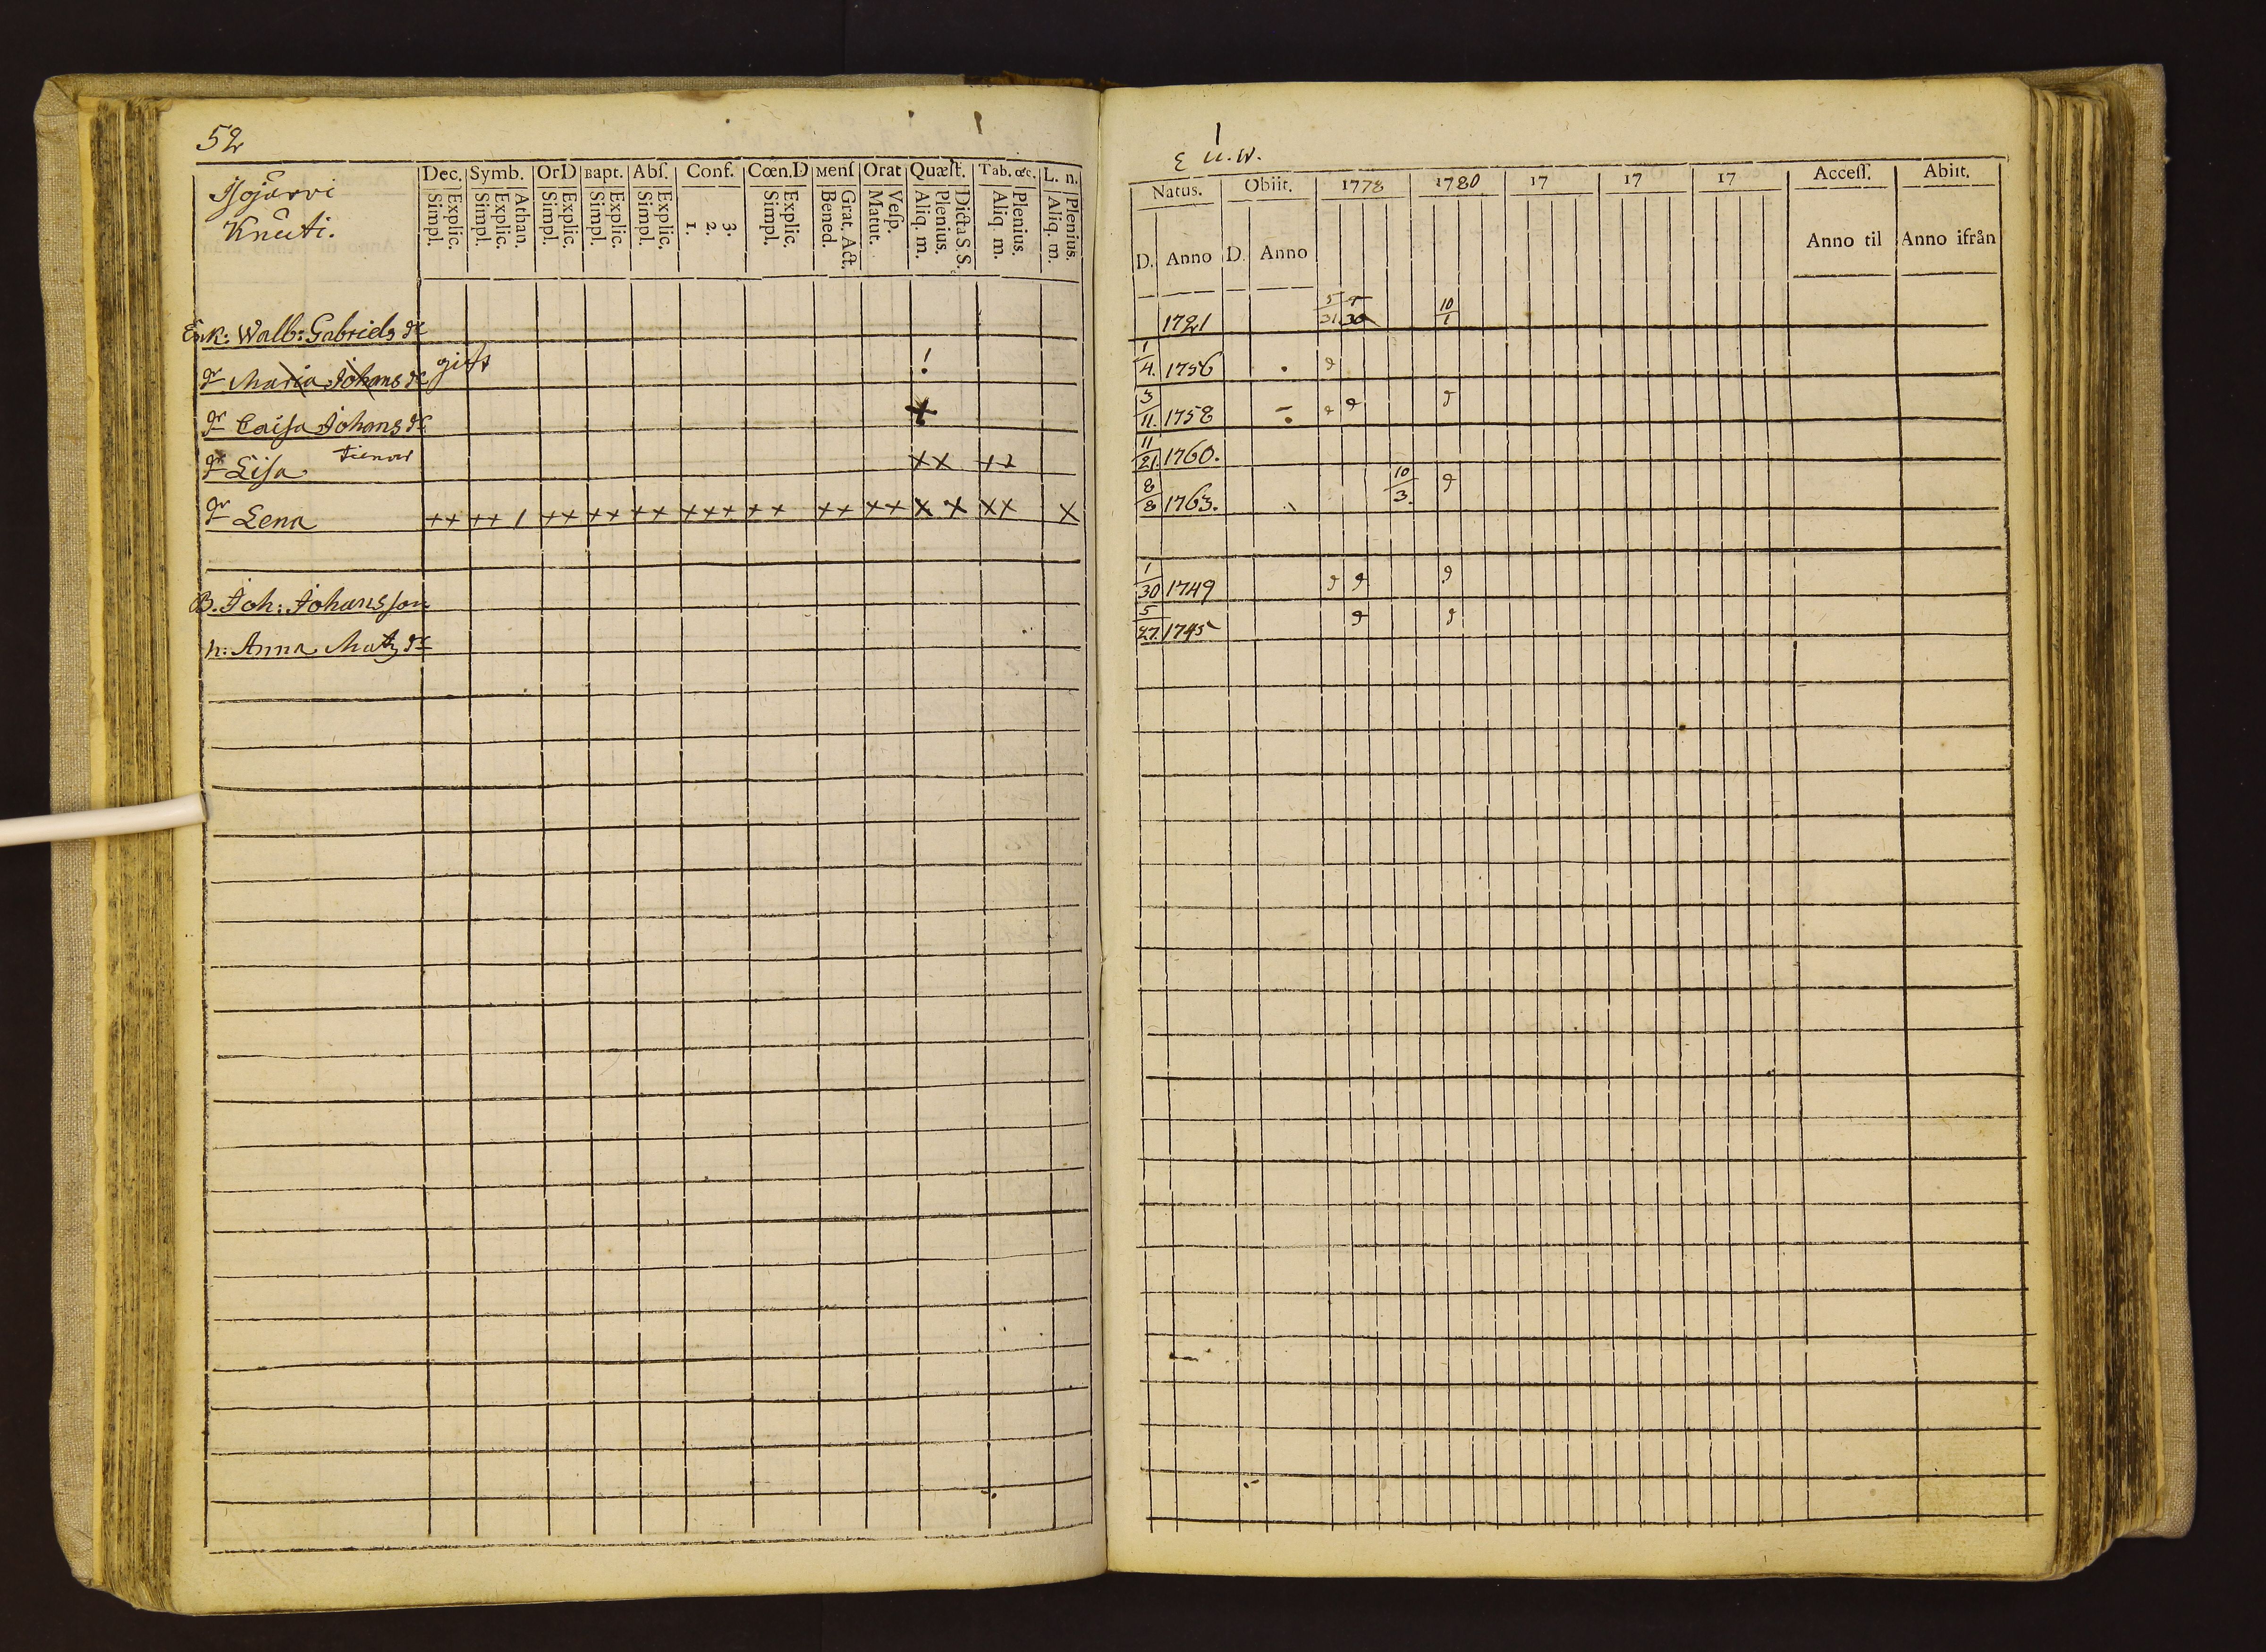 52
Isojärvi
Knuti.
Dec. Symb. OrD Bapt. Abſ. Conf. Cœn.D Menſ Orat Quæſt. Tab. œc. L. n.
Explic. Simpl. Athan. Explic. Simpl. Explic. Simpl. Explic. Simpl. Explic. Simpl. 3. 2. 1. Explic. Simpl. Grat. Act. Bened. Veſp. Matut. Dicta S. S. Plenius. Aliq. m. Plenius. Aliq. m. Plenius. Aliq. m.
Enk: Walb: Gabriels dr
dr Maria Johans dr gift
dr Caisa Johans dr
dr Lisa tienar ×× ++
dr Lena ++ ++ / ++ ++ ++ +++ ++ ++ ++ × × ×× ×
B. Joh: Johansson
h: Anna Mats dr
E u.w.
Natus. Obiit. 1778 1780 17 17 17 Acceſſ. Abiit.
D. Anno D. Anno Anno til Anno ifrån
1721 10/1
1/4. 1756
3/11. 1758
11/21. 1760.
8/8 1763. 10/3.
1/30 1749
5/27. 1745